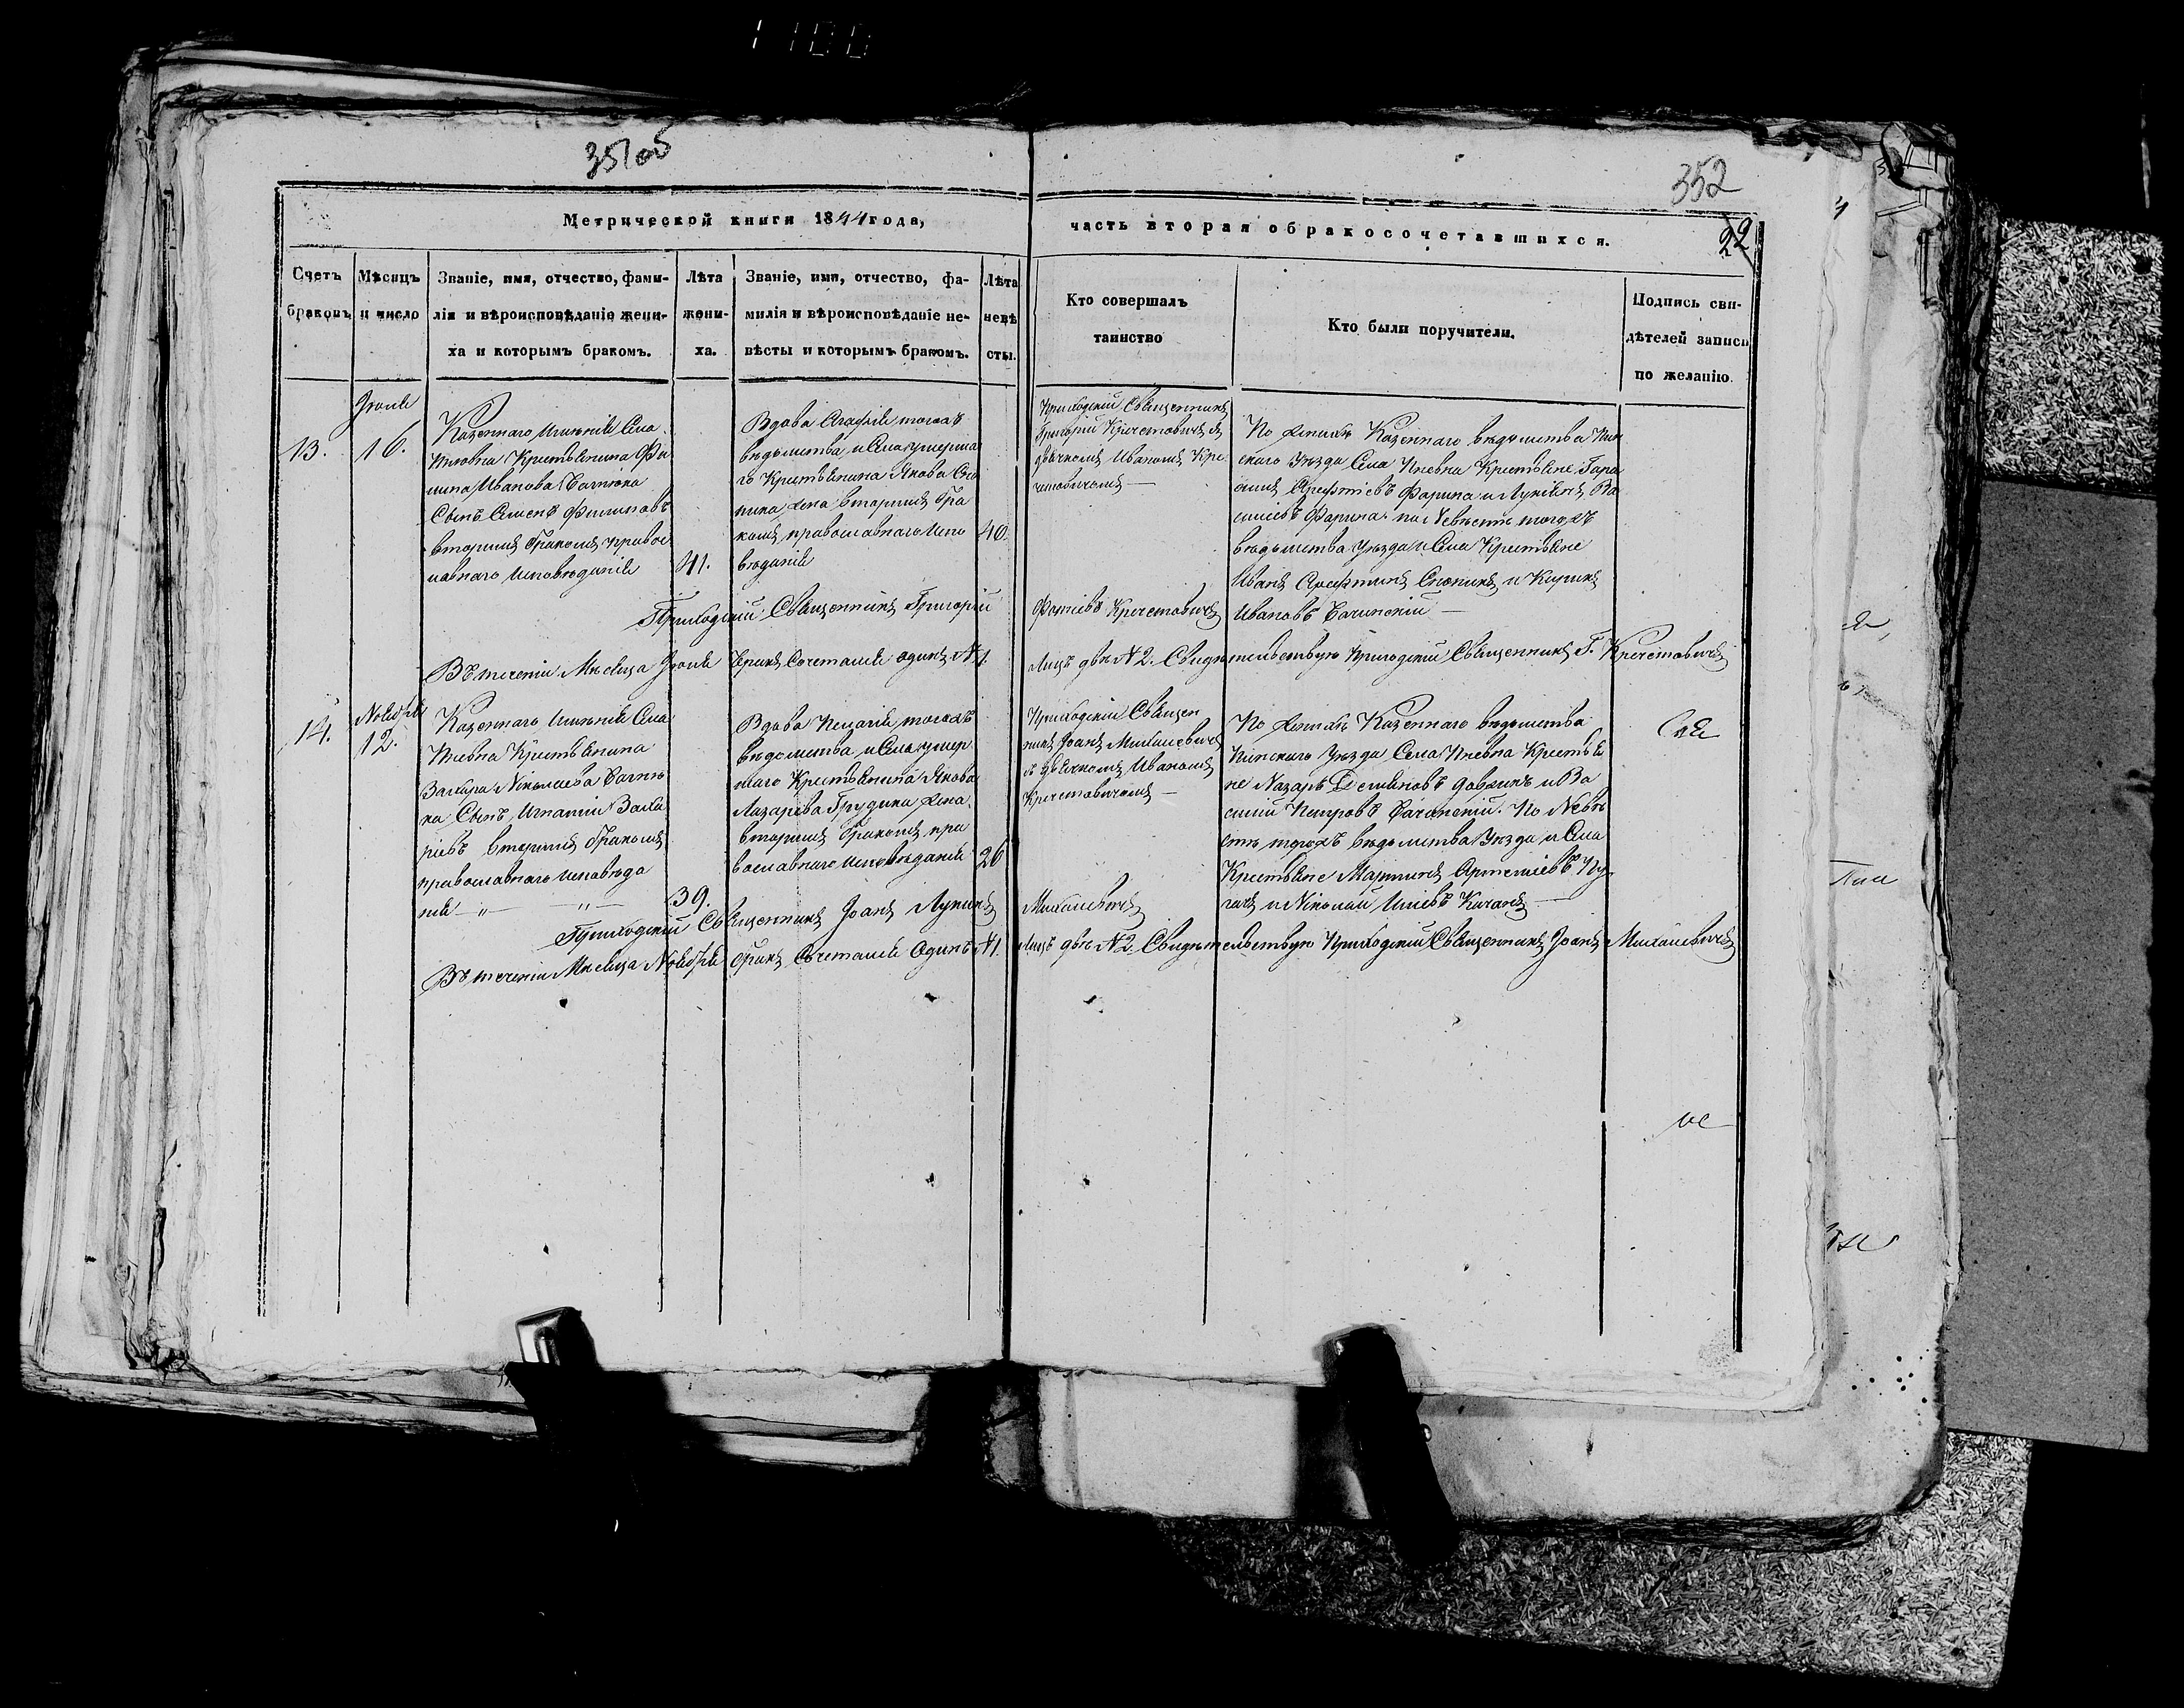 1100
351об
352
22
Метрической книги 1844 года,
часть вторая о бракосочетавшихся.
Счетъ браковъ
Мѣсяцъ и число
Званіе, имя, отчество, фами-
лія и вѣроисповѣданіе жени-
ха и которымъ бракомъ.
Лѣта
жени-
ха.
Званіе, имя, отчество, фа-
милія и вѣроисповѣданіе не-
вѣсты и которымъ бракомъ.
Лѣта
невѣ
сты.
Кто совершалъ
таинство
Кто были поручители.
Подпись сви-
дѣтелей записи
по желанію.
13.
Іюля
16.
Казеннаго Имѣнія Села
Пневна Крестьянина Фи
липа Иванова
Сынъ Семенъ Филиповъ
вторымъ бракомъ правос
лавнаго исповѣданія
41.
Вдова Агафія тогожъ
вѣдомства и Села умерша
го Крестьянина Якова
жена вторымъ бра
комъ православнаго испо
вѣданія
40.
Приходскій Священникъ
Григорій Кречетовичъ съ
дьячкомъ Иваномъ Кре
четовичемъ —
По женихѣ Казеннаго вѣдомства Пин
скаго Уѣзда Села Пневна Крестьяне Гара
симъ Арефтіевъ Фарина и Лукіянъ Ва
силіевъ Фарина. по Невѣстѣ тогожъ
вѣдомства Уѣзда и Села Крестьяне
Иванъ и Кирикъ
Ивановъ —
Приходскій Священникъ Григорій
Фотіевъ Кречетовичъ
Въ теченіи Мѣсяца Іюля бракъ Сочетался одинъ №1.
Лицъ двѣ №2. Свидѣтельствую Приходскій Священникъ Г. Кречетовичъ
14.
Ноября
12.
Казеннаго Имѣнія Села
Пневна Крестьянина
Захара Николаева
Сынъ Игнатій Заха
ріевъ вторымъ бракомъ
православнаго исповѣда
нія — " — " —
39.
Вдова Пелагія тогожъ
вѣдомства и Села умер
шаго Крестьянина Якова
Лазарева Грудика жена
вторымъ бракомъ пра
вославнаго исповѣданія
26
Приходскій Священ
никъ Іоанъ Михалевичъ
съ дьячкомъ Иваномъ
Кречетовичемъ —
По женихѣ Казеннаго вѣдомства
Пинскаго Уѣзда Села Пневна Крестья
не Назаръ Демяновъ и Ва
силій Петровъ По Невѣ
стѣ тогожъ вѣдомства Уѣзда и Села
Крестьяне Мартинъ Артеміевъ
и Николай Иліевъ Качанъ —
Приходскій Священникъ Іоанъ Лукинъ
Михалевичъ
Въ теченіи Мѣсяца Ноября бракъ Сочетался Одинъ №1.
Лицъ двѣ №2. Свидѣтельствую Приходскій Священникъ Іоанъ Михалевичъ